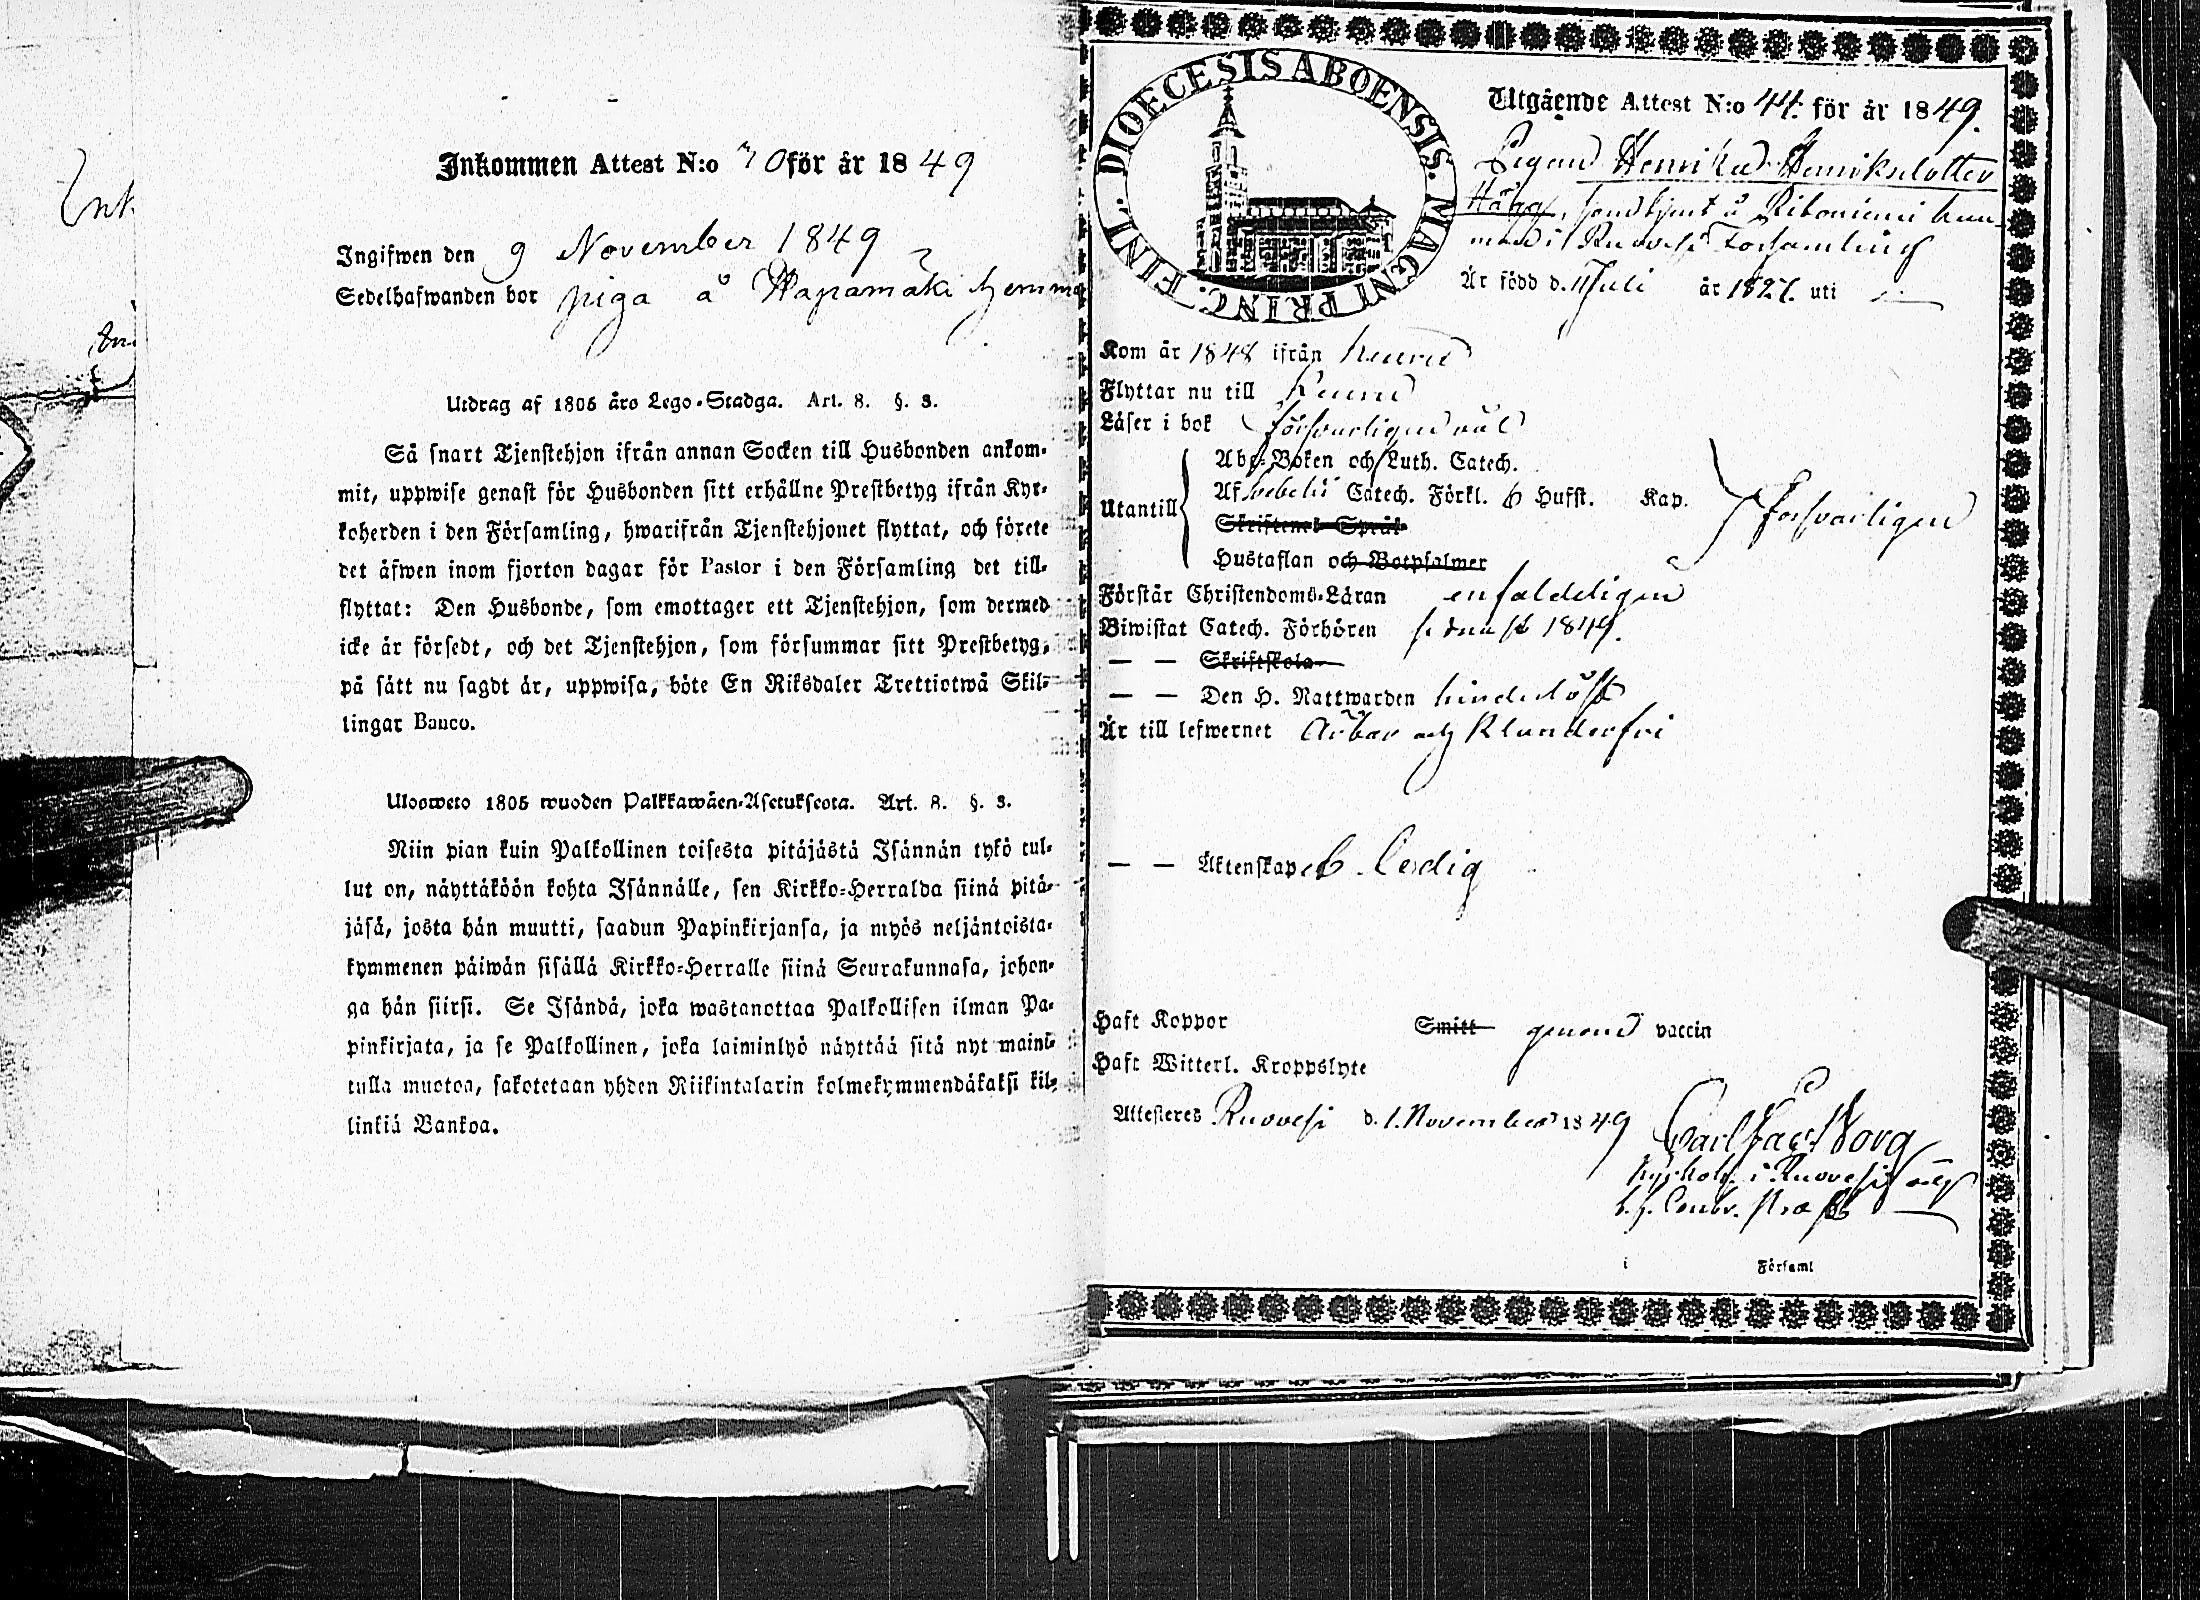 Inkommen Attest N:o 70 för år 1849
Ingifwen den 9 November 1849
Sedelhafwanden bor piga å Hapamäki hemma
Utdrag af 1805 års Lego-Stadga. Art. 8. §. 3.
Så snart Tjenstehjon ifrån annan Socken till Husbonden ankom-
mit, uppwise genast för Husbonden sitt erhållne Prestbetyg ifrån Kyr-
koherden i den Församling, hwarifrån Tjenstehjonet flyttat, och förete
det äfwen inom fjorton dagar för Pastor i den Församling det till-
flyttat: Den Husbonde, som emottager ett Tjenstehjon, som dermed
icke är försedt, och det Tjenstehjon, som försummar sitt Prestbetyg,
på sätt nu sagdt är, uppwisa, böte En Riksdaler Trettiotwå Skil-
lingar Banco.
Ulosweto 1805 wuoden Palkkawäen-Asetuksesta. Art. 8. §. 3.
Niin pian kuin Palkollinen toisesta pitäjästä Isännän tykö tul-
lut on, näyttäköön kohta Isännälle, sen Kirkko-Herralda siinä pitä-
jäsä, josta hän muutti, saadun Papinkirjansa, ja myös neljäntoista-
kymmenen päiwän sisällä Kirkko-Herralle siinä Seurakunnasa, johon-
ga hän siirsi. Se Isändä, joka wastanottaa Palkollisen ilman Pa-
pinkirjata, ja se Palkollinen, joka laiminlyö näyttää sitä nyt maini-
tulla muotoa, sakotetaan yhden Riikintalarin kolmekymmendäkaksi kil-
linkiä Bankoa.
DIOECESIS ABOENSIS. MAGNI PRINC. FINL.
Utgående Attest N:o 44. för år 1849.
Pigan Henrika Henriksdotter
Hägg, som tjent å Ritoniemi hem-
man i Ruovesi Församling
Är född d. 11 Juli år 1827. uti
Kom år 1848 ifrån Keuru
Flyttar nu till Keuru
Läser i bok försvarligen väl
Abc-Boken och Luth. Catech.
Utantill Af Svebelii Catech. Förkl. 6 Hufst. Kap. försvarligen
Skriftenes Språk
Hustaflan och Botpsalmer
Förstår Christendoms-Läran enfaldeligen
Biwistat Catech. Förhören sednast 1849.
— — Skriftskola
— — Den H. Nattwarden hinderlöst
Är till lefwernet Ärbar och Klanderfri
— — Äktenskap Ledig
Haft Koppor Smitt genom vaccin
Haft Witterl. Kroppslyte
Attesteres Ruovesi d. 1. November 1849
Carl Borg
Kyrkoh. i Ruovesi
i Församl